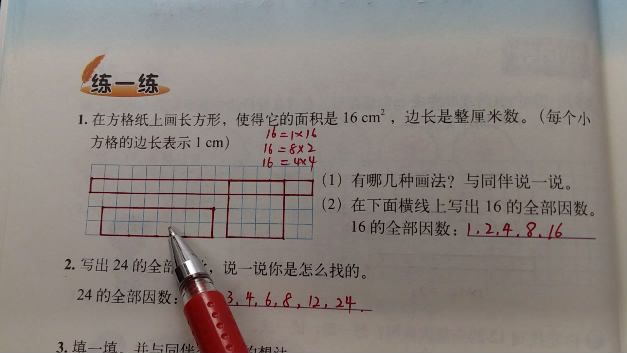 练一练
1. 在方格纸上画长方形，使得它的面积是 16 cm²，边长是整厘米数。（每个小
方格的边长表示 1 cm）
16=1×16
16=8×2
16=4×4
(1) 有哪几种画法？与同伴说一说。
(2) 在下面横线上写出 16 的全部因数。
16 的全部因数：1,2,4,8,16
2. 写出 24 的全部，说一说你是怎么找的。
24 的全部因数：3,4,6,8,12,24.
3. 填一填，并与同伴的想法